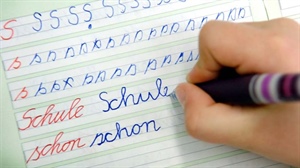 S S S S S S S S S S
s s s s s s s s s s s
s s s s s s s s s s s
Schule Schule
schon schon